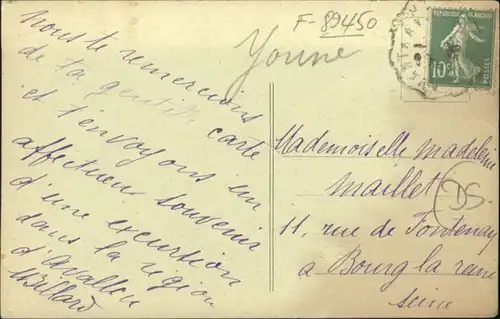 F-89450
Yonne
nous te remercions
de ta gentille carte
et t'envoyons un
affectueux souvenir
d'une excursion
dans la région
d'Avallon
REPUBLIQUE FRANÇAISE
10c
POSTES
Mademoiselle Madeleine
Maillet
DS
11, rue de Fontenay
à Bourg la reine
Seine